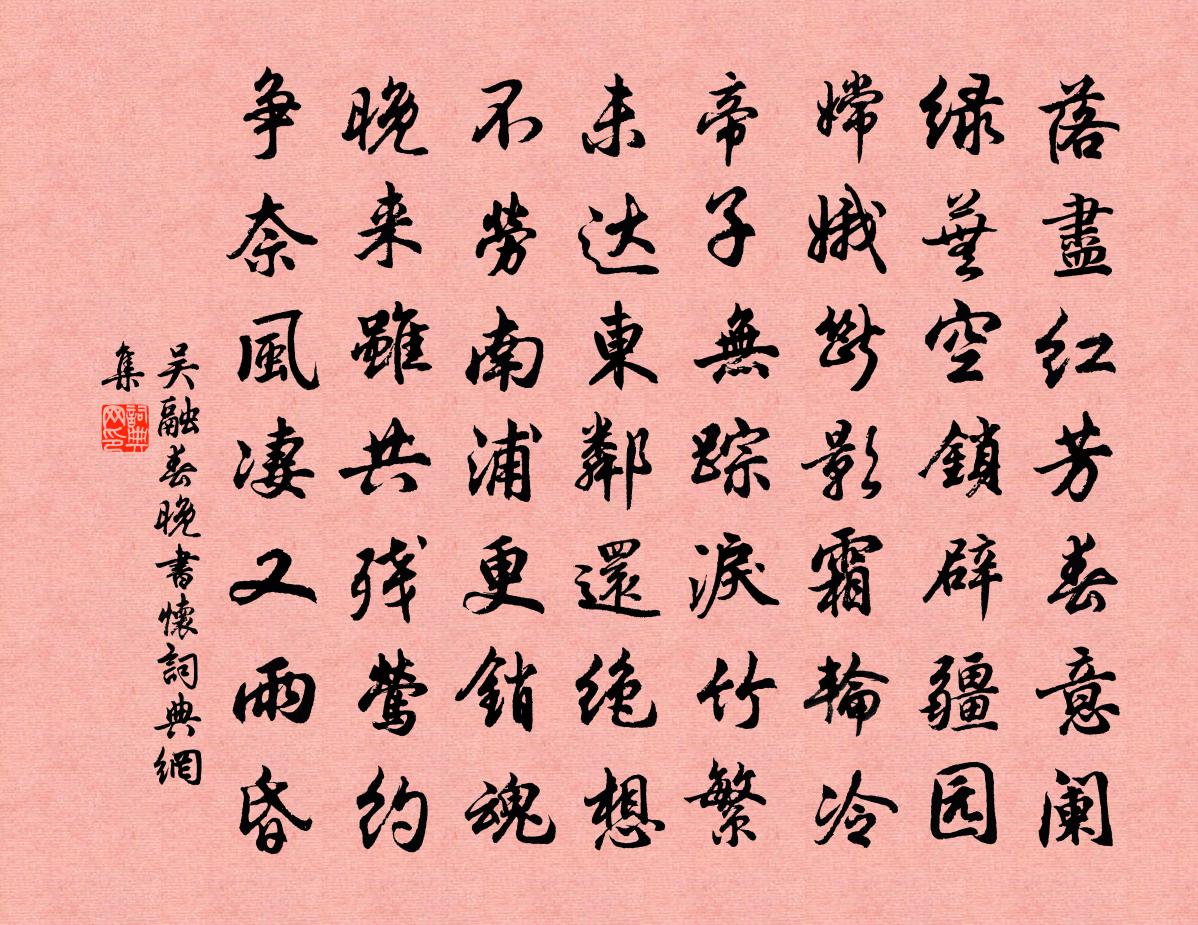 落盡红芳春意阑
绿蕪空鎖辟疆园
嫦娥断影霜輪冷
帝子無踪淚竹繁
未达東鄰還絶想
不勞南浦更銷魂
晚来雖共残鶯約
争奈風凄又雨昏
吴融春晚書懷詞典網
集
詞典网印